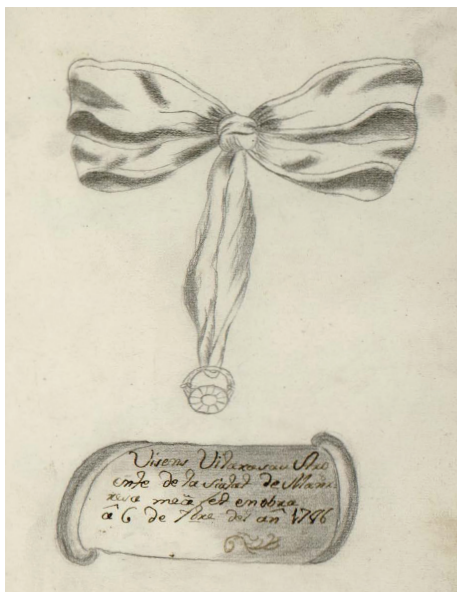 Visens Vilarasau Aro
ente de la siutat de Manr
resa meā fet en obra
â 6 de 7bre del añ 1786